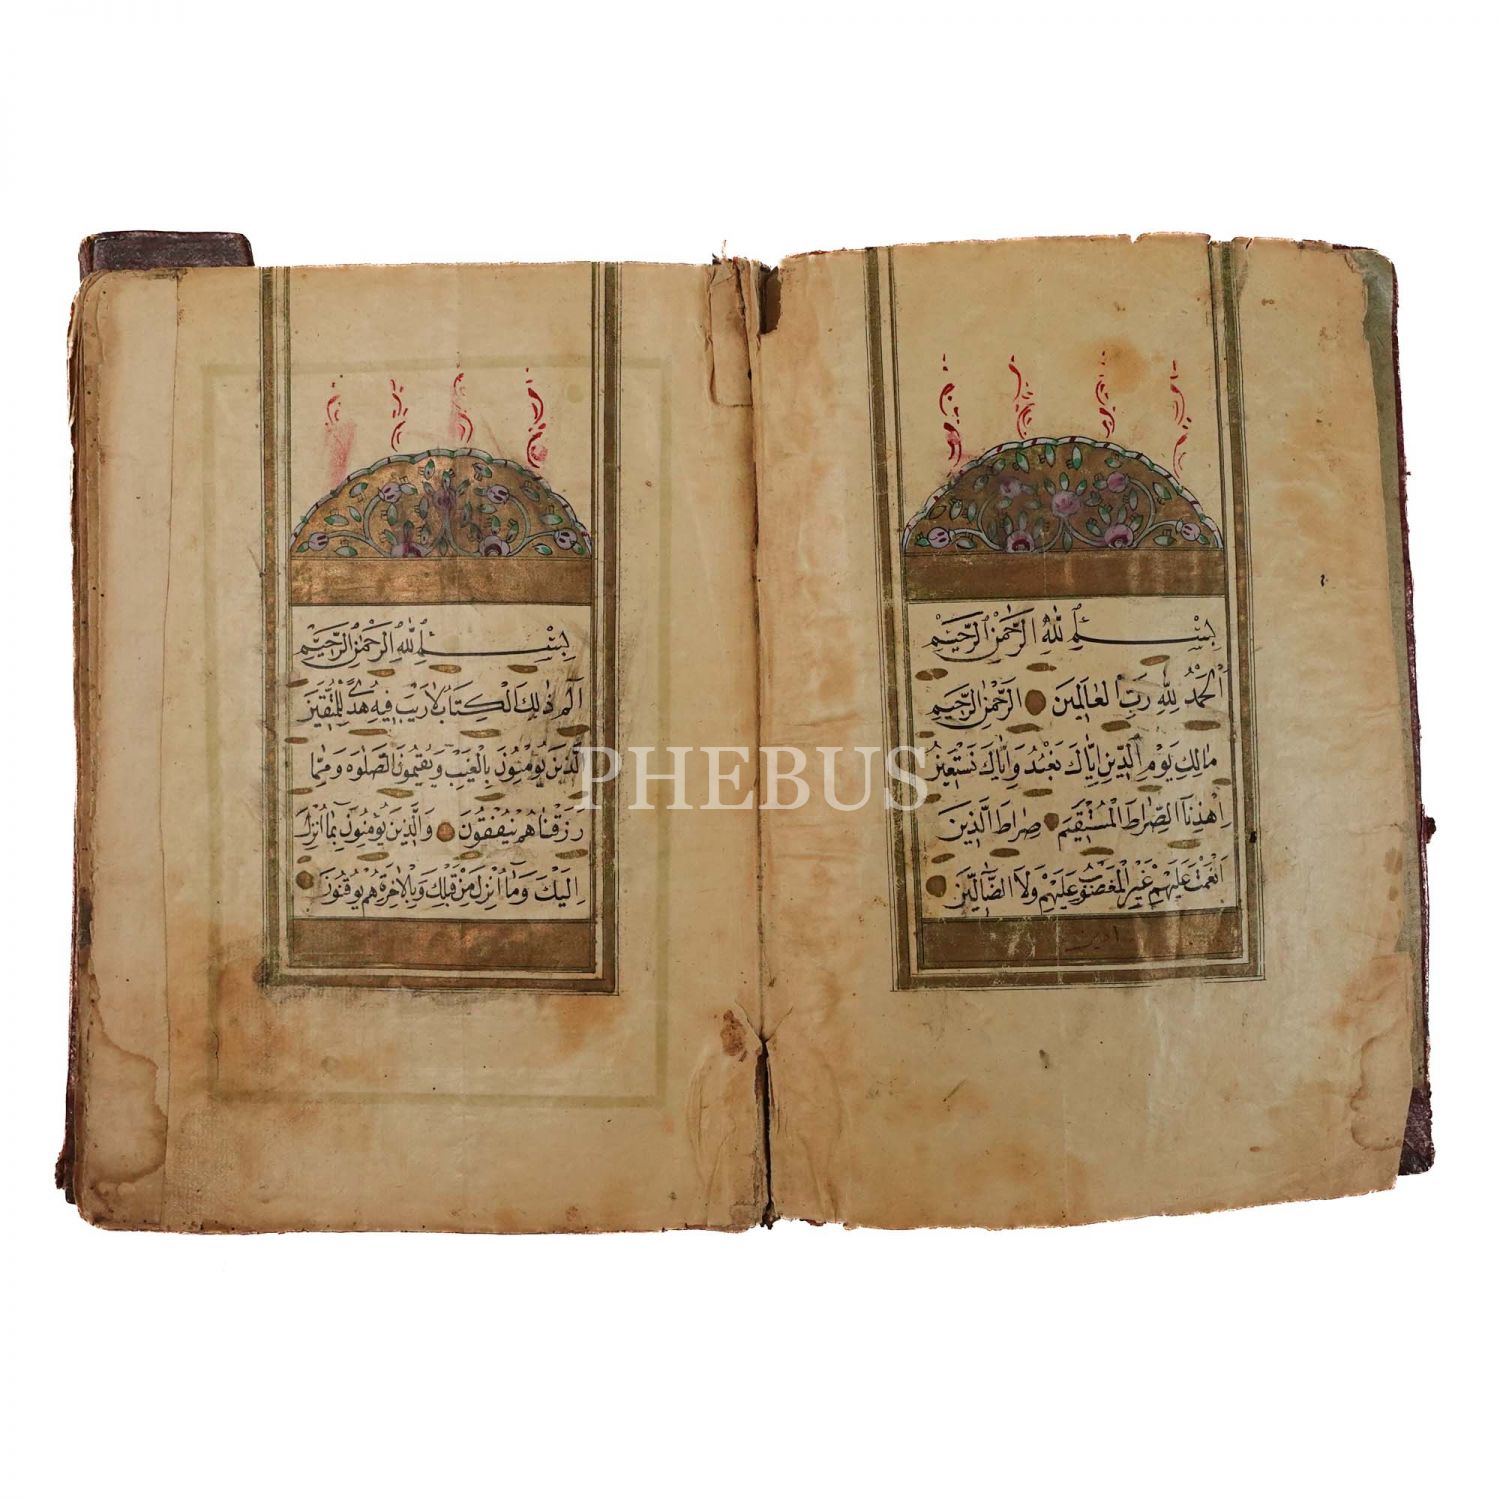 بسم الله الرحمن الرحيم
الحمد لله رب العالمين الرحمن الرحيم
مالك يوم الدين اياك نعبد واياك نستعين
اهدنا الصراط المستقيم صراط الذين
انعمت عليهم غير المغضوب عليهم ولا الضالين
امين
بسم الله الرحمن الرحيم
الم ذلك الكتاب لا ريب فيه هدى للمتقين
الذين يؤمنون بالغيب ويقيمون الصلوه ومما
رزقناهم ينفقون والذين يؤمنون بما انزل
اليك وما انزل من قبلك وبالاخرة هم يوقنون
PHEBUS